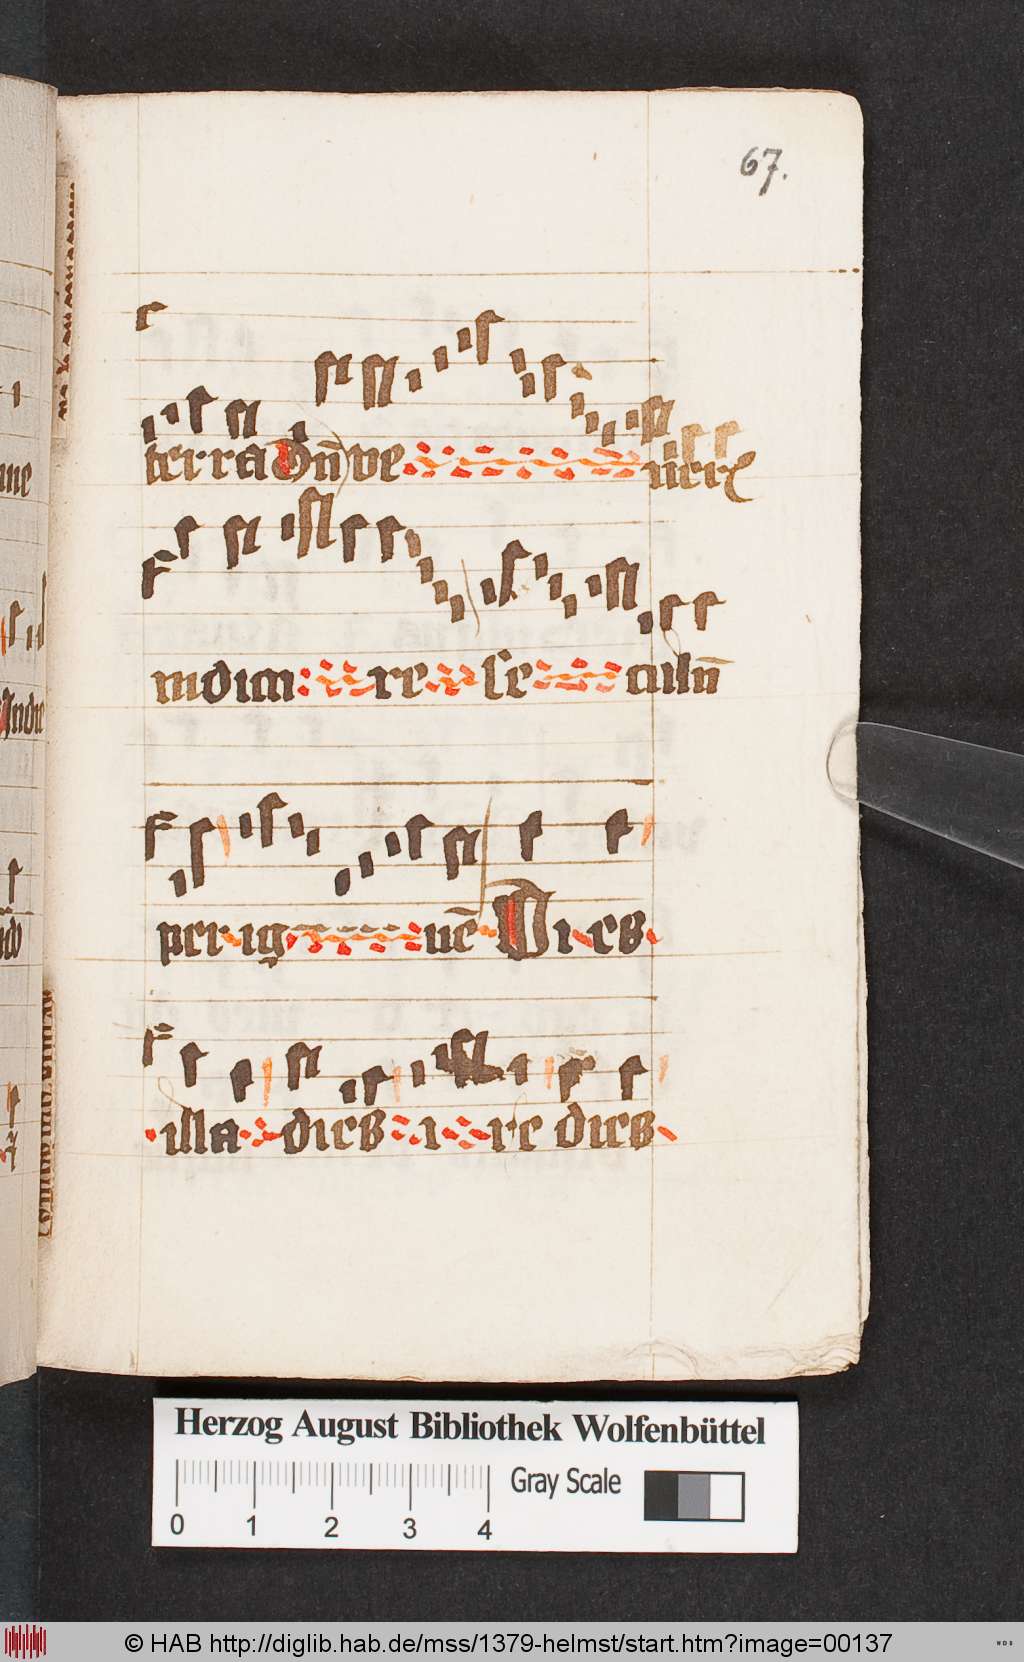 67.
terra Dn̄ ve neris
iudica re se culūm
per ig nē Dies
illa dies i re dies
Herzog August Bibliothek Wolfenbüttel
Gray Scale
0 1 2 3 4
© HAB http://diglib.hab.de/mss/1379-helmst/start.htm?image=00137